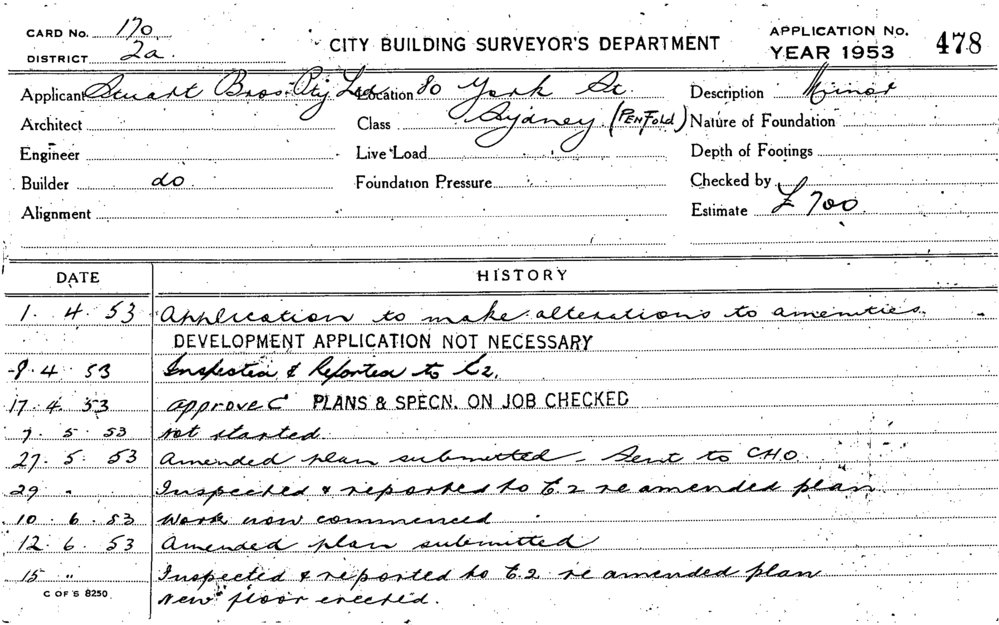 CARD No. 170
DISTRICT 2a.
CITY BUILDING SURVEYOR'S DEPARTMENT
APPLICATION No.
YEAR 1953
478
Applicant Stuart Bros. Pty Ltd Location 80 York St. Description Minor
Architect Class Sydney (PENFOLD) Nature of Foundation
Engineer Live Load Depth of Footings
Builder do Foundation Pressure Checked by
Alignment Estimate £700
DATE HISTORY
1. 4. 53 Application to make alterations to amenities.
DEVELOPMENT APPLICATION NOT NECESSARY
9. 4. 53 Inspected & Reported to E2.
17. 4. 53 Approved PLANS & SPECN. ON JOB CHECKED
7. 5. 53 Not started.
27. 5. 53 Amended plan submitted - Sent to CHO.
29 " Inspected & reported to E2 re amended plan
10. 6. 53 Work now commenced
12. 6. 53 Amended plan submitted
15 " Inspected & reported to E2 re amended plan
New floor erected.
C OF S 8250